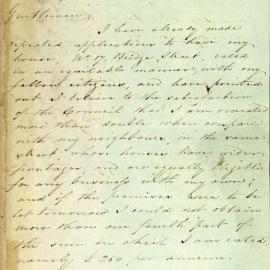 Gentlemen,
I have already made
repeated applications to have my
house, No 17, Bridge Street, rated
in an equitable manner with my
fellow citizens, and have pointed
out I believe to the satisfaction
of the Council that I am overrated
more than double when compared
with my neighbours in the same
street whose houses have wider
frontages, and are equally eligible
for any business with my own;
and if the premises were to be
let tomorrow I could not obtain
more than one fourth part of
the sum in which I am rated
namely, £ 250 per annum.